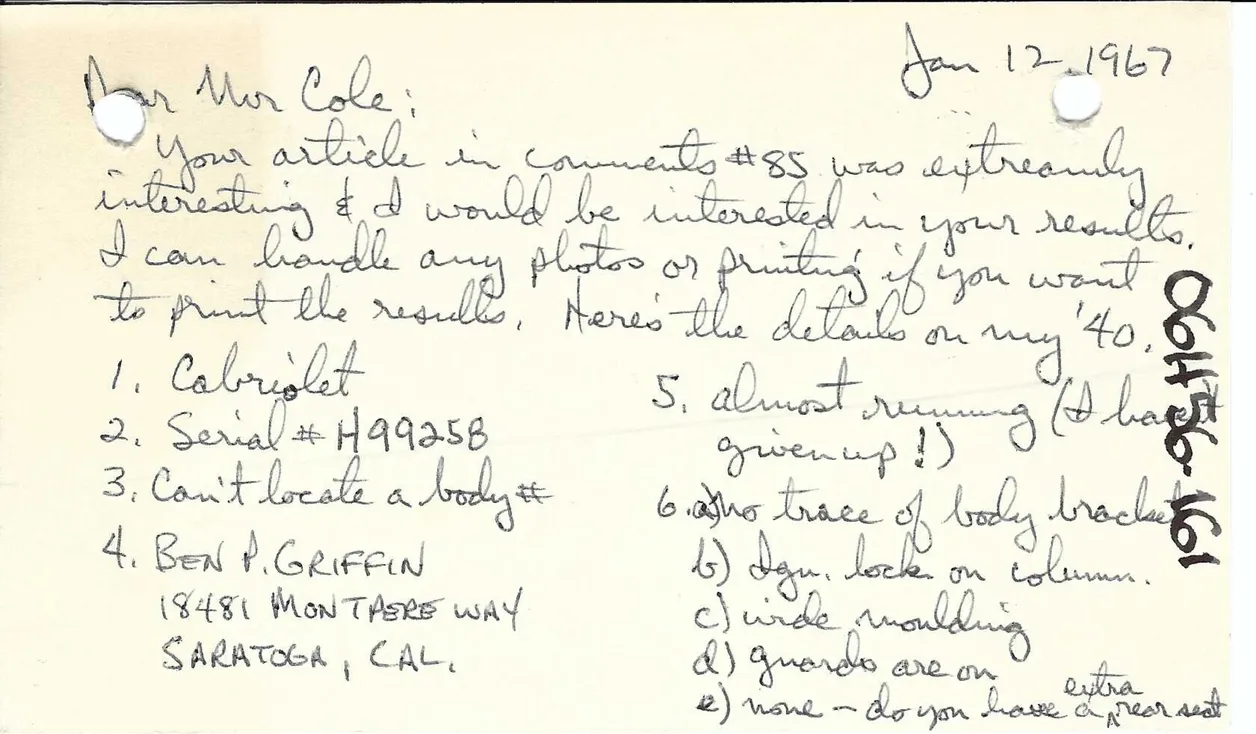 Jan 12, 1967
Dear Mr Cole:
Your article in comments #85 was extreamly
interesting & I would be interested in your results.
I can handle any photos or printing if you want
to print the results. Here's the details on my '40.
1. Cabriolet
2. Serial # H99258
3. Can't locate a body #
4. BEN P. GRIFFIN
18481 MONTPERE WAY
SARATOGA, CAL.
5. almost running (I haven't
given up!)
6. a) no trace of body bracket
b) Ign. lock on column.
c) wide moulding
d) guards are on
e) none – do you have a extra rear seat